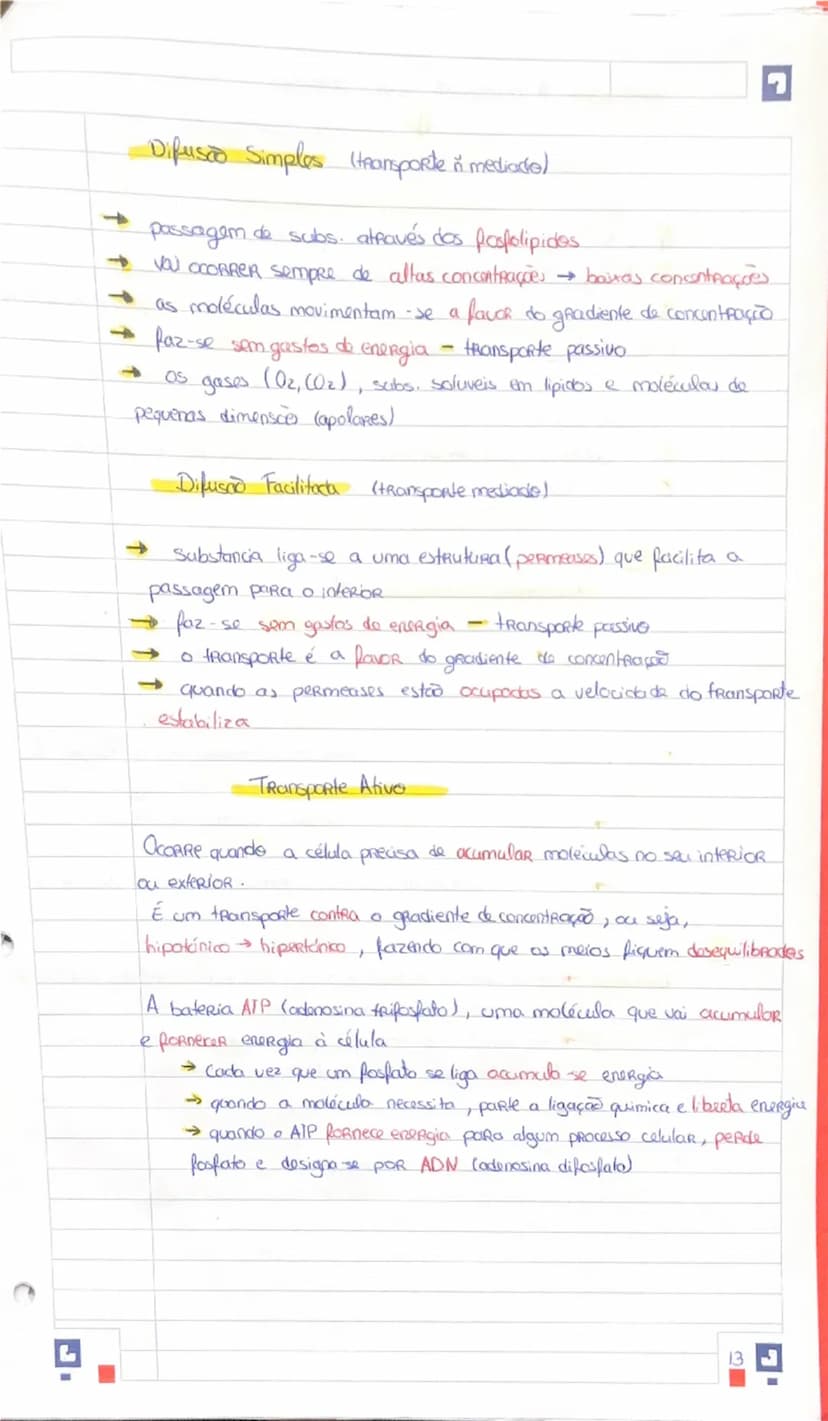 Difusão Simples (transporte ñ mediado)
→ passagem de subs. através dos fosfolipidos
→ vai ocorrer sempre de altas concentrações → baixas concentrações
→ as moléculas movimentam-se a favor do gradiente de concentração
→ faz-se sem gastos de energia - transporte passivo
→ os gases (O2, CO2), subs. soluveis em lipidos e moléculas de
pequenas dimensões (apolares)
Difusão Facilitada (transporte mediado)
→ substancia liga-se a uma estrutura (permeases) que facilita a
passagem para o interior
→ faz-se sem gastos de energia - transporte passivo
→ o transporte é a favor do gradiente de concentração
→ quando as permeases estão ocupadas a velocidade do transporte
estabiliza
Transporte Ativo
Ocorre quando a célula precisa de acumular moléculas no seu interior
ou exterior.
É um transporte contra o gradiente de concentração, ou seja,
hipotónico → hipertónico, fazendo com que os meios fiquem desequilibrados
A bateria ATP (adenosina trifosfato), uma molécula que vai acumular
e fornecer energia à célula
→ Cada vez que um fosfato se liga acumula-se energia
→ quando a molécula necessita, parte a ligação quimica e liberta energia
→ quando o ATP fornece energia para algum processo celular, perde
fosfato e designa-se por ADN (adenosina difosfato)
13